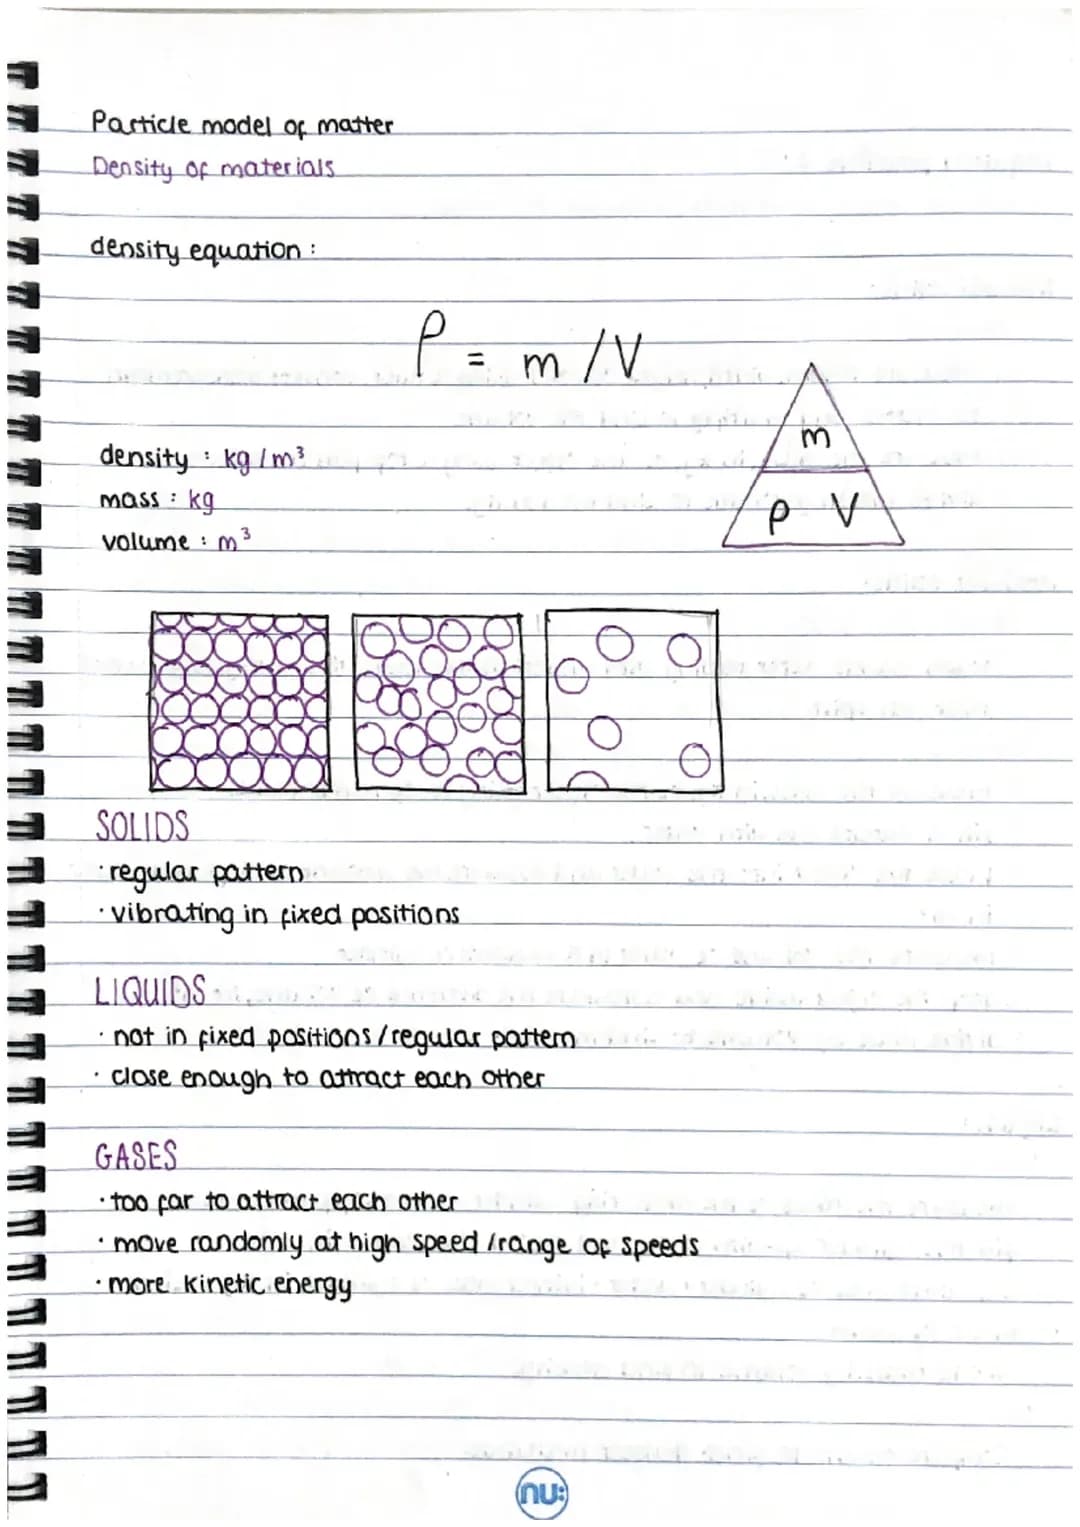 Particle model of matter
Density of materials
density equation :
ρ = m / V
m
ρ V
density : kg / m³
mass : kg
volume : m³
SOLIDS
· regular pattern
· vibrating in fixed positions
LIQUIDS
· not in fixed positions / regular pattern
· close enough to attract each other
GASES
· too far to attract each other
· move randomly at high speed / range of speeds
· more kinetic energy
nu: